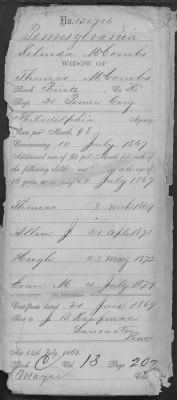 No. 150906
Pennsylvania
Selinda McCombs
WIDOW OF
Thomas McCombs
Rank Private Co H
Regt 21 Penn
Philadelphia Agency
Rate per Month $8
Commencing 10 July 1867
Additional sum of $2 per Month for each of
the following children
16 years 10 July 1867
Thomas 8 Mch 1869
Allen J 21 Apl 1871
Hugh 23 May 1872
Evan M 4 July 1879
Certificate dated 21 June 1869
Sent to J B Kaufman
Lancaster
Penn
Act 14th July, 1862.
Book C Vol 13 Page 207